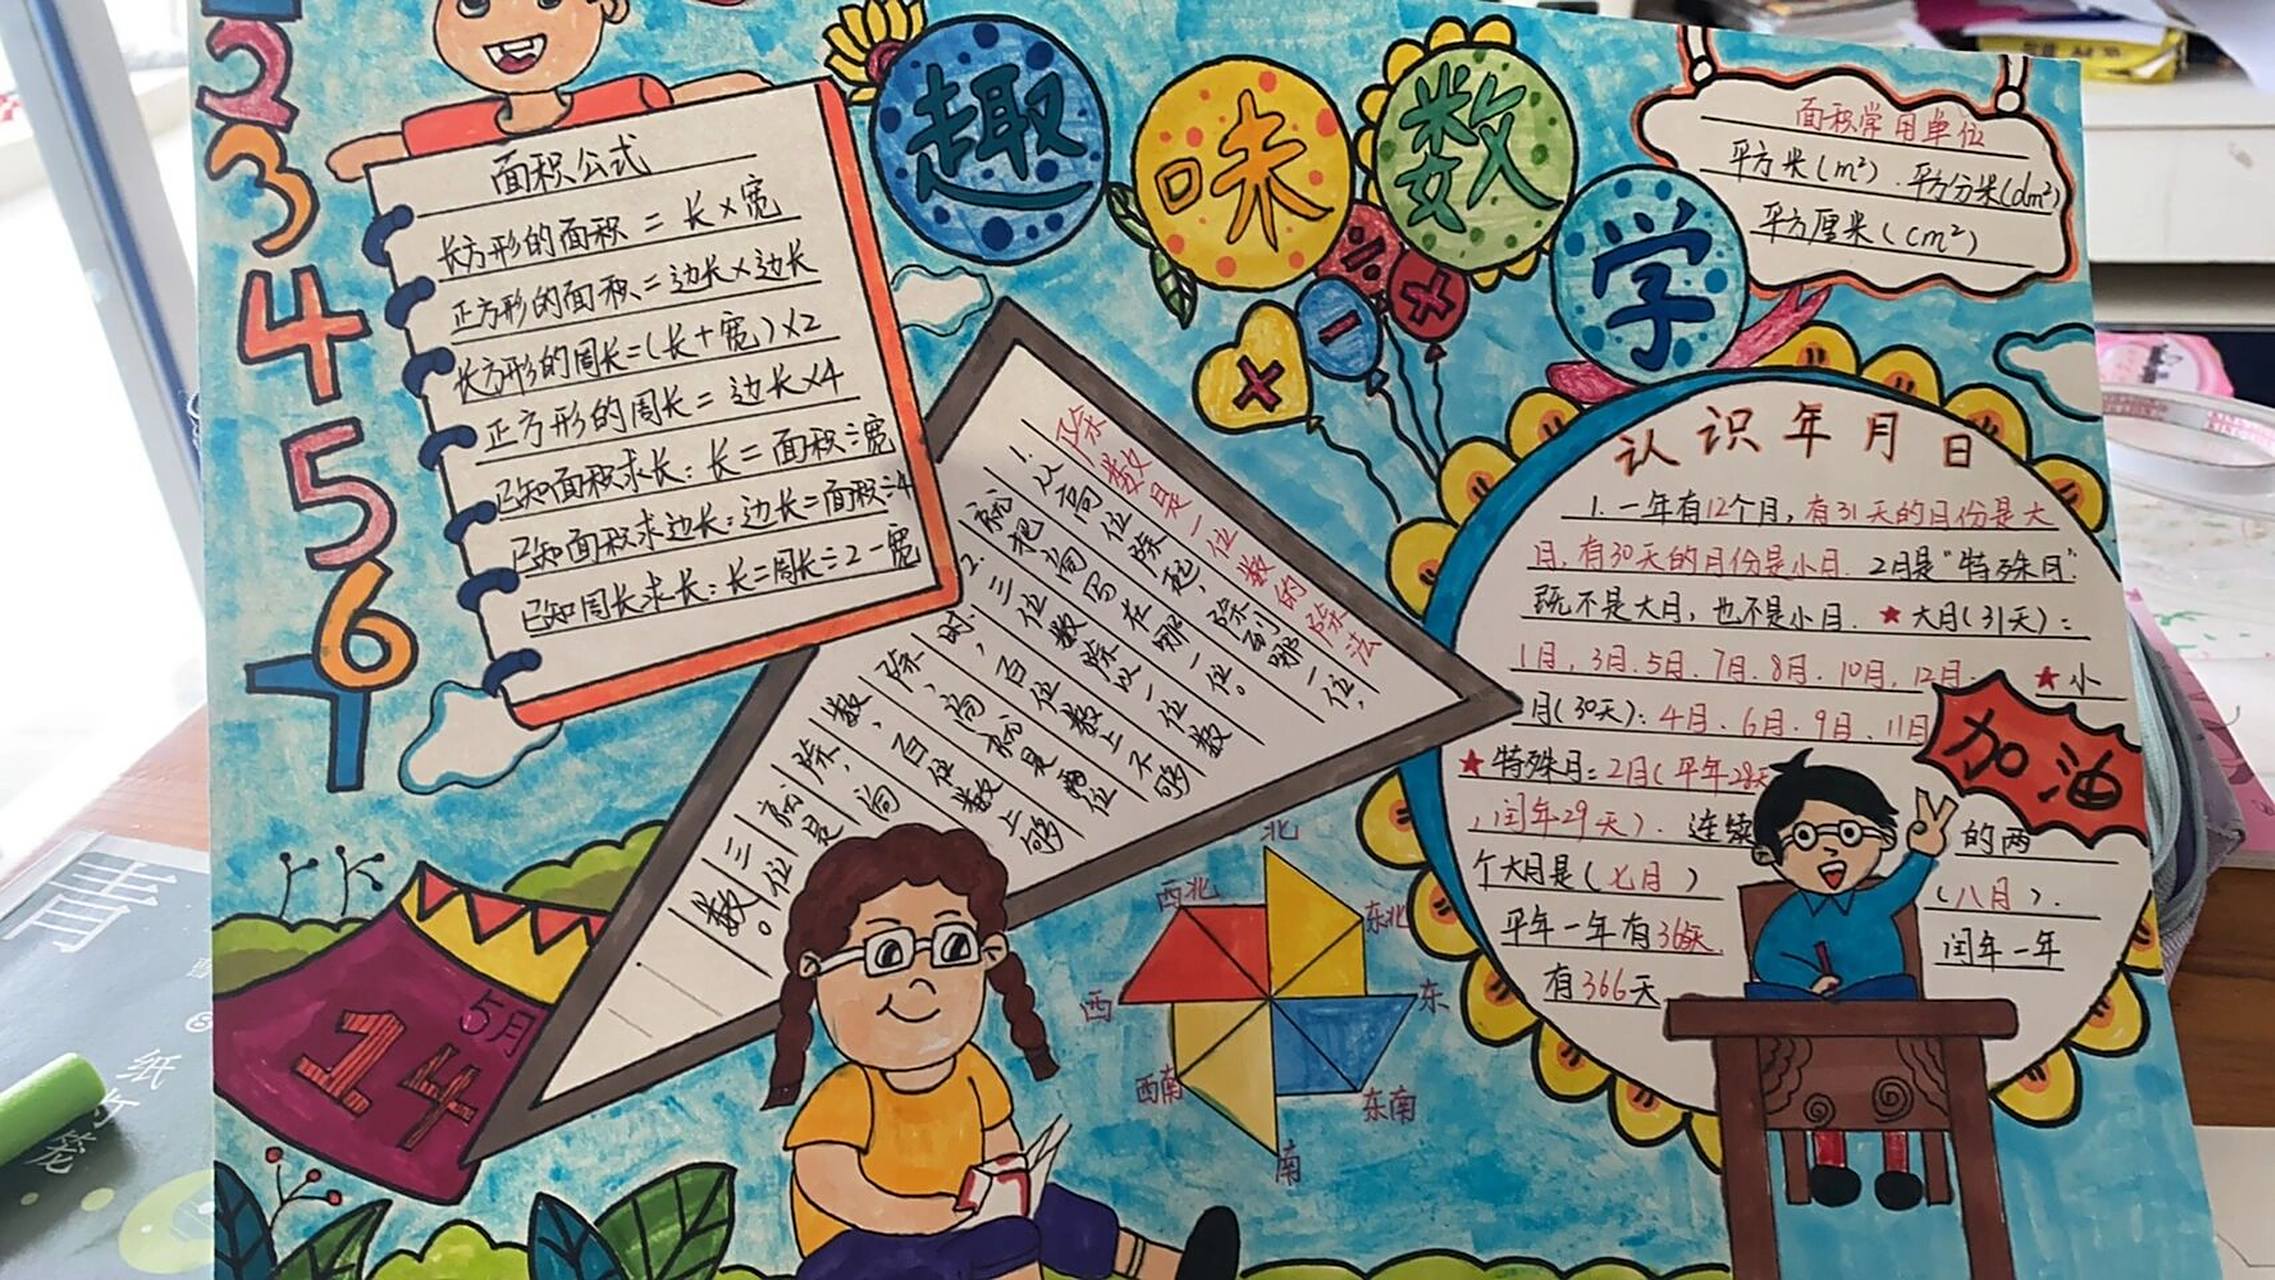 2
3
4
5
6
7
面积公式
长方形的面积 = 长×宽
正方形的面积=边长×边长
长方形的周长=(长+宽)×2
正方形的周长= 边长×4
已知面积求长:长=面积÷宽
已知面积求边长:边长=面积÷4
已知周长求长:长=周长÷2-宽
趣味数学
% × - ×
面积常用单位
平方米(m²)、平方分米(dm²)
平方厘米(cm²)
除数是一位数的除法
1. 从高位除起,除到哪一位,
就把商写在哪一位。
2. 三位数除以一位数
时,百位数上不够
除,商就是两位
数,百位数上够
除,商
就是
三位
数。
认识年月日
1.一年有12个月,有31天的月份是大
月,有30天的月份是小月.2月是“特殊月”.
既不是大月,也不是小月. ★大月(31天):
1月、3月、5月、7月、8月、10月、12月. ★小
月(30天):4月、6月、9月、11月
★特殊月:2月(平年28天
,闰年29天). 连续 的两
个大月是(七月) (八月).
平年一年有365天. 闰年一年
有366天
加油
北
西北
东北
西
东
西南
东南
南
5月
14
纸